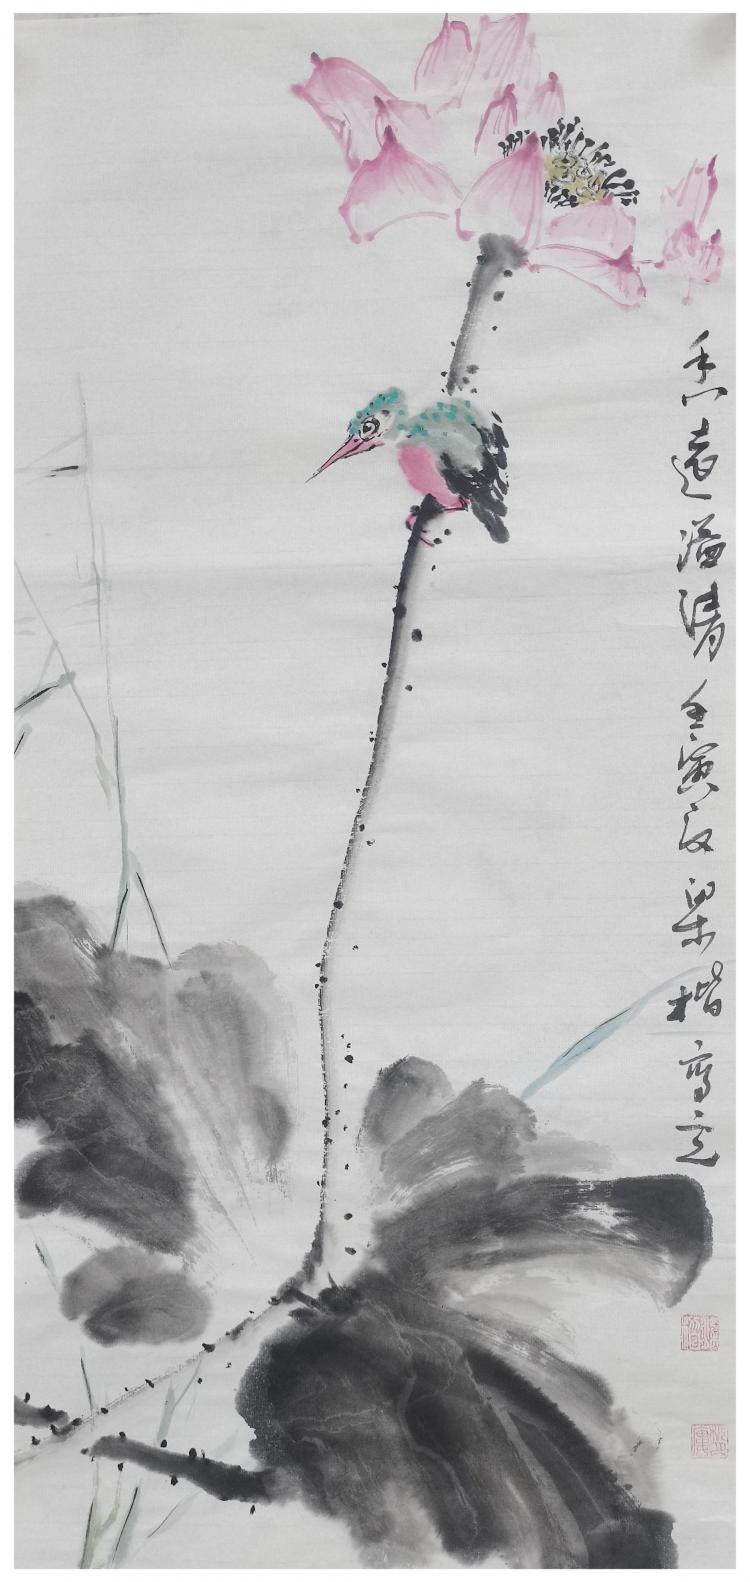 香遠溢清 壬寅夏 梁楷寫意